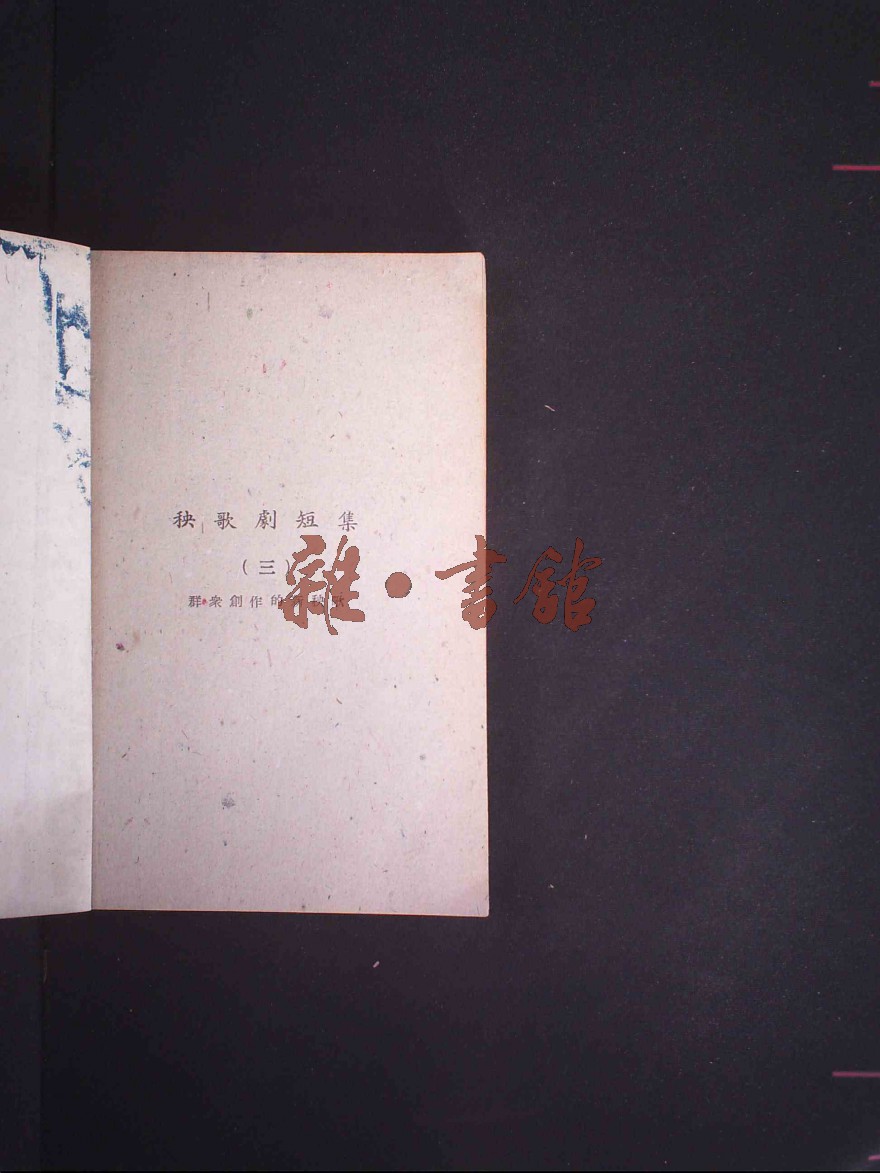 秧歌劇短集
（三）
群衆創作的新秧歌
雜·書館